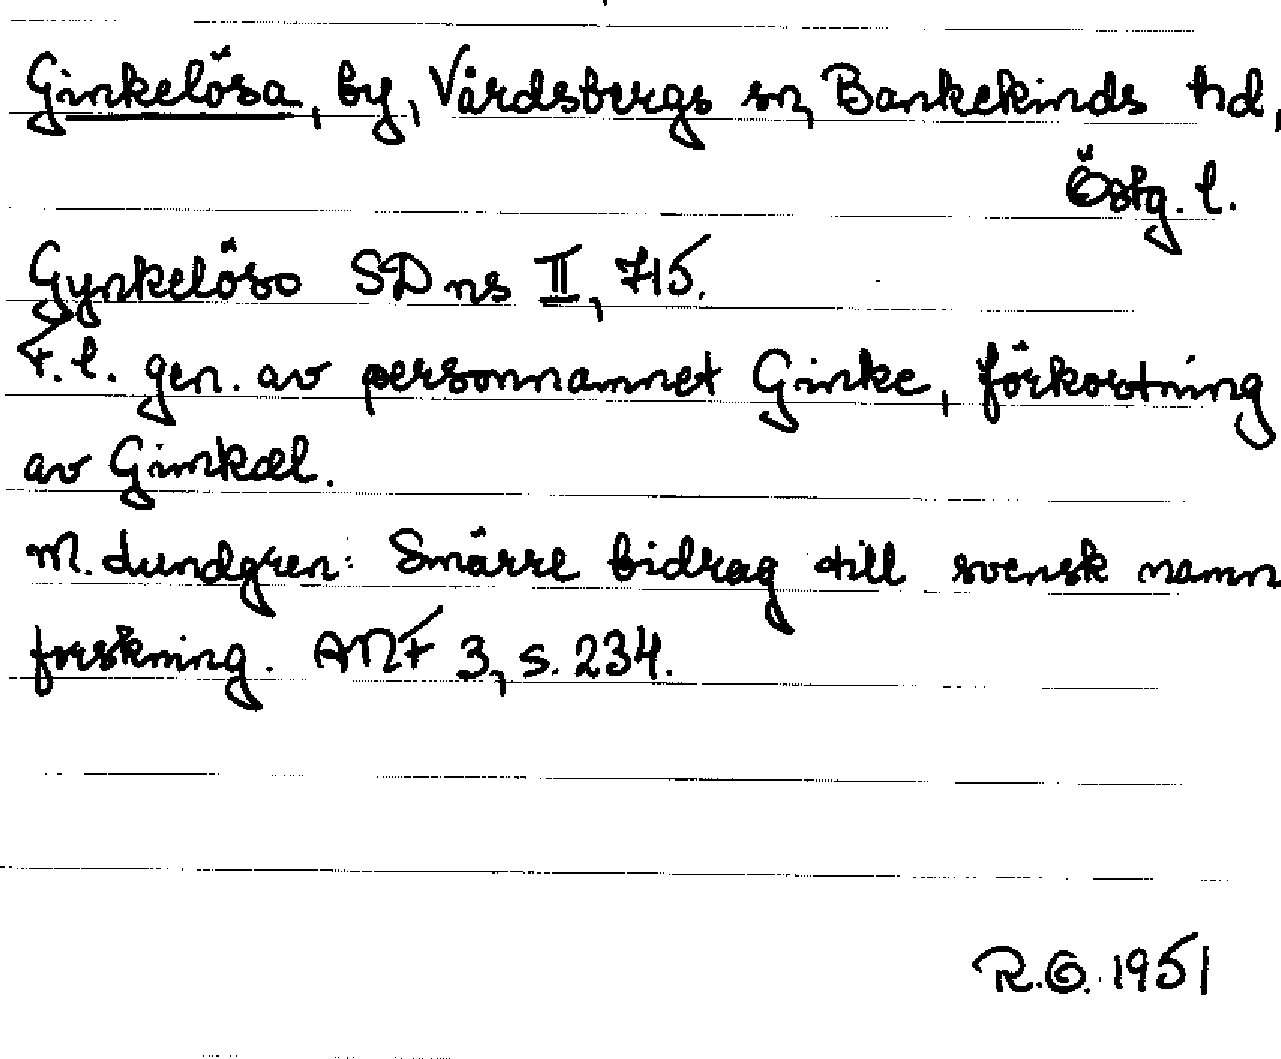 Ginkelösa, by, Vårdsbergs sn, Bankekinds hd,
Östg. l.
Gynkelöso SD ns II, 715.
F. l. gen. av personnamnet Ginke, förkortning
av Ginkæl.
M. Lundgren: Smärre bidrag till svensk namn
forskning. ANF 3, s. 234.
R.G. 1951